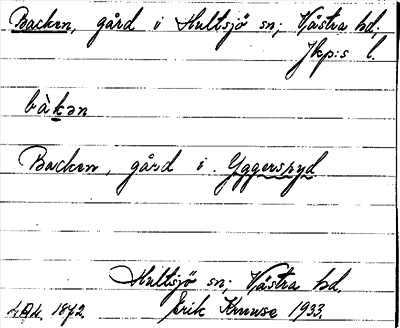 Backen, gård i Hultsjö sn; Västra hd,
Jkp:s l.
bàkən
Backen, gård i Yggersryd
Hultsjö sn; Västra hd.
1872. Erik Kruuse 1933.